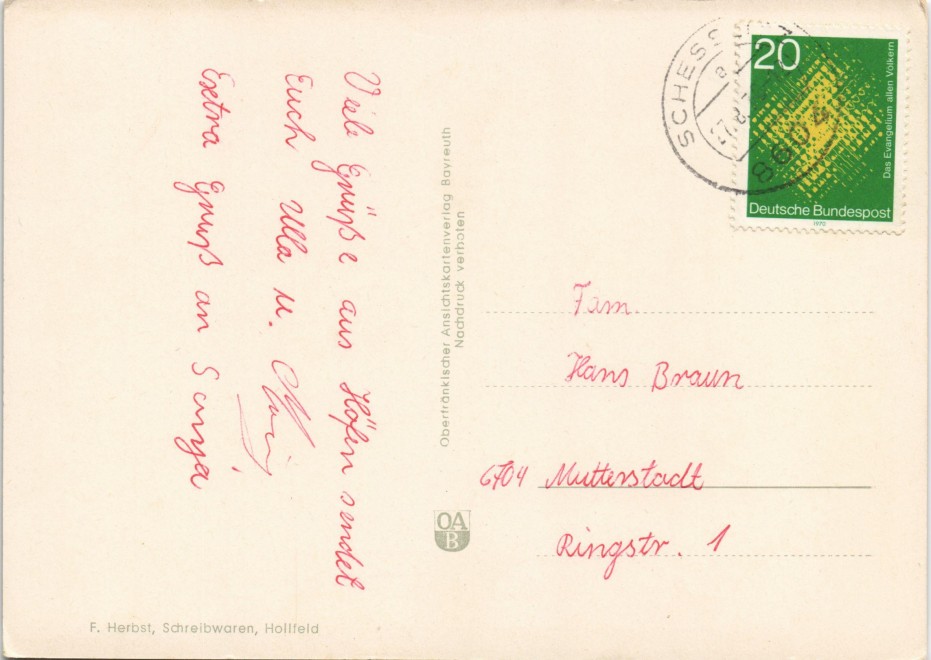 Viele Grüße aus Höfen sendet
Euch Ulla u.
Extra Gruß an
Oberfränkischer Ansichtskartenverlag Bayreuth
Nachdruck verboten
OA
B
F. Herbst, Schreibwaren, Hollfeld
SCHESS
8604
20
Das Evangelium allen Völkern
Deutsche Bundespost
1970
Fam.
Hans Braun
6704 Mutterstadt
Ringstr. 1